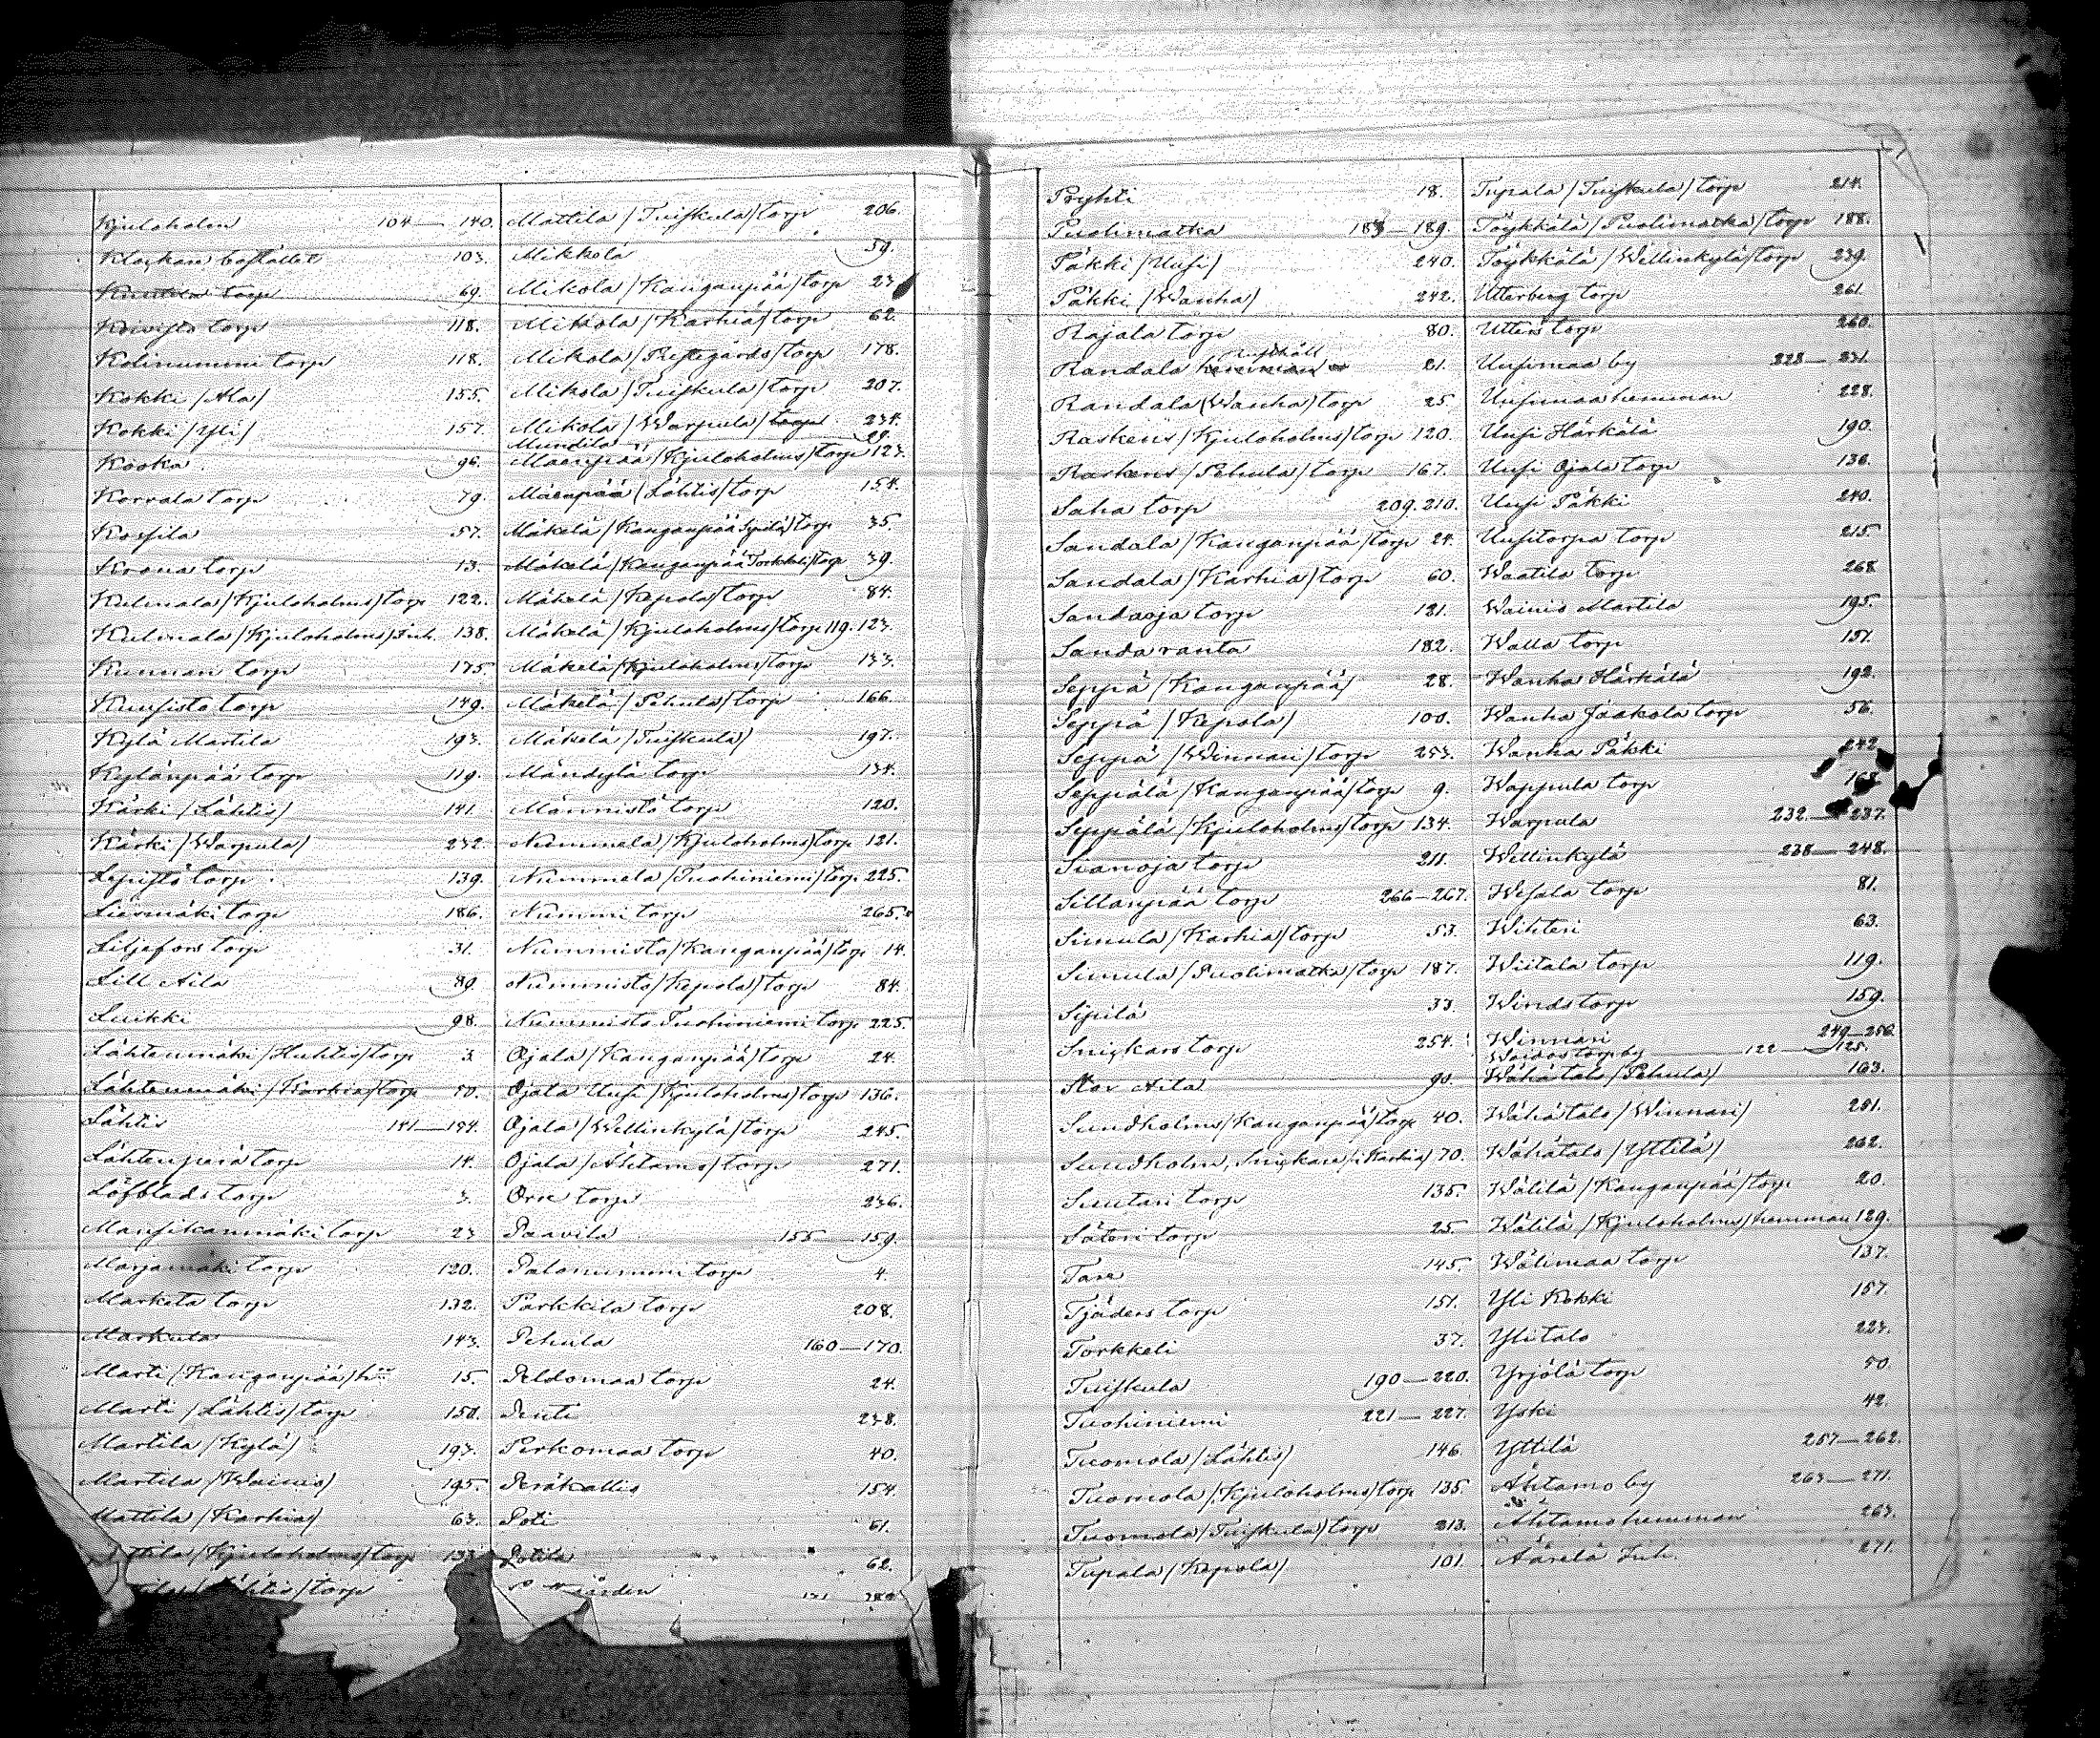 Kjuloholm 104—140.
Klockare bostället 103.
Knutila torp 69.
Koivisto torp 118.
Kolinummi torp 118.
Kokki /Ala/ 155.
Kokki /Yli/ 157.
Kooka 96.
Korvala torp 79.
Kossila 57.
Krona torp 13.
Kulmala /Kjuloholms/ torp 122.
Kulmala /Kjuloholms/ Inh. 138.
Kunnan torp 175.
Kuusisto torp 149.
Kylä Martila 193.
Kylänpää torp 119.
Kärki /Lähtis/ 141.
Kärki /Warpula/ 232.
Lepistö torp 139.
Liesmäki torp 186.
Liljefors torp 31.
Lill Aila 89.
Luikki 98.
Lähtenmäki /Huhtis/ torp 3.
Lähtenmäki /Karhia/ torp 50.
Lähtis 141—154.
Lähtenperä torp 14.
Löfblads torp 3.
Mansikanmäki torp 23
Marjamäki torp 120.
Marketa torp 132.
Markula 143.
Marti /Kanganpää/ hn 15.
Marti /Lähtis/ torp 150.
Martila /Kylä/ 193.
Martila /Wainis/ 195.
Mattila /Karhia/ 63.
Mattila /Kjuloholms/ torp 133.
/Lähtis/ torp
Mattila /Tuiskula/ torp 206.
Mikkola 59.
Mikola /Kanganpää/ torp 23
Mikola /Karhia/ torp 62.
Mikola /Prestegårds/ torp 178.
Mikola /Tuiskula/ torp 207.
Mikola /Warpula/ torp 234.
Mundila 29.
Mäenpää /Kjuloholms/ torp 123.
Mäenpää /Lähtis/ torp 154.
Mäkelä /Kanganpää Sipilä/ torp 35.
Mäkelä /Kanganpää Torkkeli/ torp 39.
Mäkelä /Kepola/ torp 84.
Mäkelä /Kjuloholms/ torp 119. 123.
Mäkelä /Kjuloholms/ torp 133.
Mäkelä /Pehula/ torp 166.
Mäkelä /Tuiskula/ 197.
Mändylä torp 134.
Männistö torp 120.
Nummela /Kjuloholms/ torp 121.
Nummela /Tuohiniemi/ torp 225.
Nummi torp 265.
Nummisto /Kanganpää/ torp 14.
Nummisto /Kepola/ torp 84.
Nummisto Tuohiniemi torp 225.
Ojala /Kanganpää/ torp 24.
Ojala Uusi /Kjuloholms/ torp 136.
Ojala /Wellinkylä/ torp 245.
Ojala /Ähtams/ torp 271.
Orre torp 236.
Paavila 155—159.
Palonummi torp 4.
Parkkila torp 208.
Pehula 160—170.
Peldomaa torp 24.
Pentti 238.
Perkomaa torp 40.
Peräkallio 154.
Poti 61.
Potila 62.
Pöyhti 18.
Puolimatka 183—189.
Päkki /Uusi/ 240.
Päkki /Wanha/ 242.
Rajala torp 80.
Rusthåll
Randala hemman 21.
Randala /Wanha/ torp 25.
Raskens /Kjuloholms/ torp 120.
Raskens /Pehula/ torp 167.
Saha torp 209. 210.
Sandala /Kanganpää/ torp 24.
Sandala /Karhia/ torp 60.
Sandaoja torp 121.
Sandaranta 182.
Seppä /Kanganpää/ 28.
Seppä /Kepola/ 100.
Seppä /Winnari/ torp 253.
Seppälä /Kanganpää/ torp 9.
Seppälä /Kjuloholms/ torp 134.
Sianoja torp 211.
Sillanpää torp 266—267.
Simula /Karhia/ torp 53.
Simula /Puolimatka/ torp 187.
Sipilä 33.
Snickars torp 254.
Stor Aila 90.
Sundholms /Kanganpää/ torp 40.
Sundholm, Snickare /i Karhia/ 70.
Suutari torp 135.
Säteri torp 25.
Tare 145.
Tjäders torp 151.
Torkkeli 37.
Tuiskula 190—220.
Tuohiniemi 221—227.
Tuomola /Lähtis/ 146
Tuomola /Kjuloholms/ torp 135.
Tuomola /Tuiskula/ torp 213.
Tupala /Kepola/ 101.
Tupala /Tuiskula/ torp 214.
Töykkälä /Puolimatka/ torp 188.
Töykkälä /Wellinkylä/ torp 239.
Utterberg torp 261.
Utters torp 260.
Uusimaa by 228—231.
Uusimaa hemman 228.
Uusi Härkälä 190.
Uusi Ojala torp 136.
Uusi Päkki 240.
Uusitorpa torp 215.
Waatila torp 268
Wainis Martila 195.
Walla torp 151.
Wanha Härkälä 192.
Wanha Jaakola torp 56.
Wanha Päkki 242.
Wappula torp 168
Warpula 232.—237.
Wellinkylä 238—248.
Wesala torp 81.
Wihteri 63.
Wiitala torp 119.
Winds torp 159.
Winnari 249—256.
Woidas torpby 122—125.
Wähätalo /Pehula/ 163.
Wähätalo /Winnari/ 251.
Wähätalo /Yttilä/ 262.
Wälilä /Kanganpää/ torp 20.
Wälilä /Kjuloholms/ hemman 129.
Wälimaa torp 137.
Yli Kokki 157.
Ylitalo 223.
Yrjölä torp 50.
Yski 42.
Yttilä 257—262.
Ähtamo by 263—271.
Ähtamo hemman 263.
Äärelä Inh. 271.